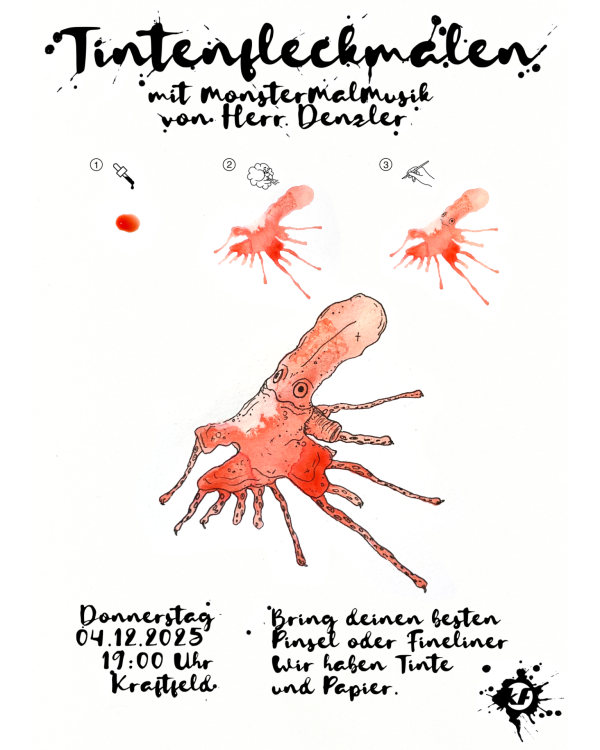 Tintenfleckmalen
mit MonsterMalMusik
von Herr Denzler
1
2
3
Donnerstag
04.12.2025
19:00 Uhr
Kraftfeld
Bring deinen besten
Pinsel oder Fineliner
Wir haben Tinte
und Papier.
KF